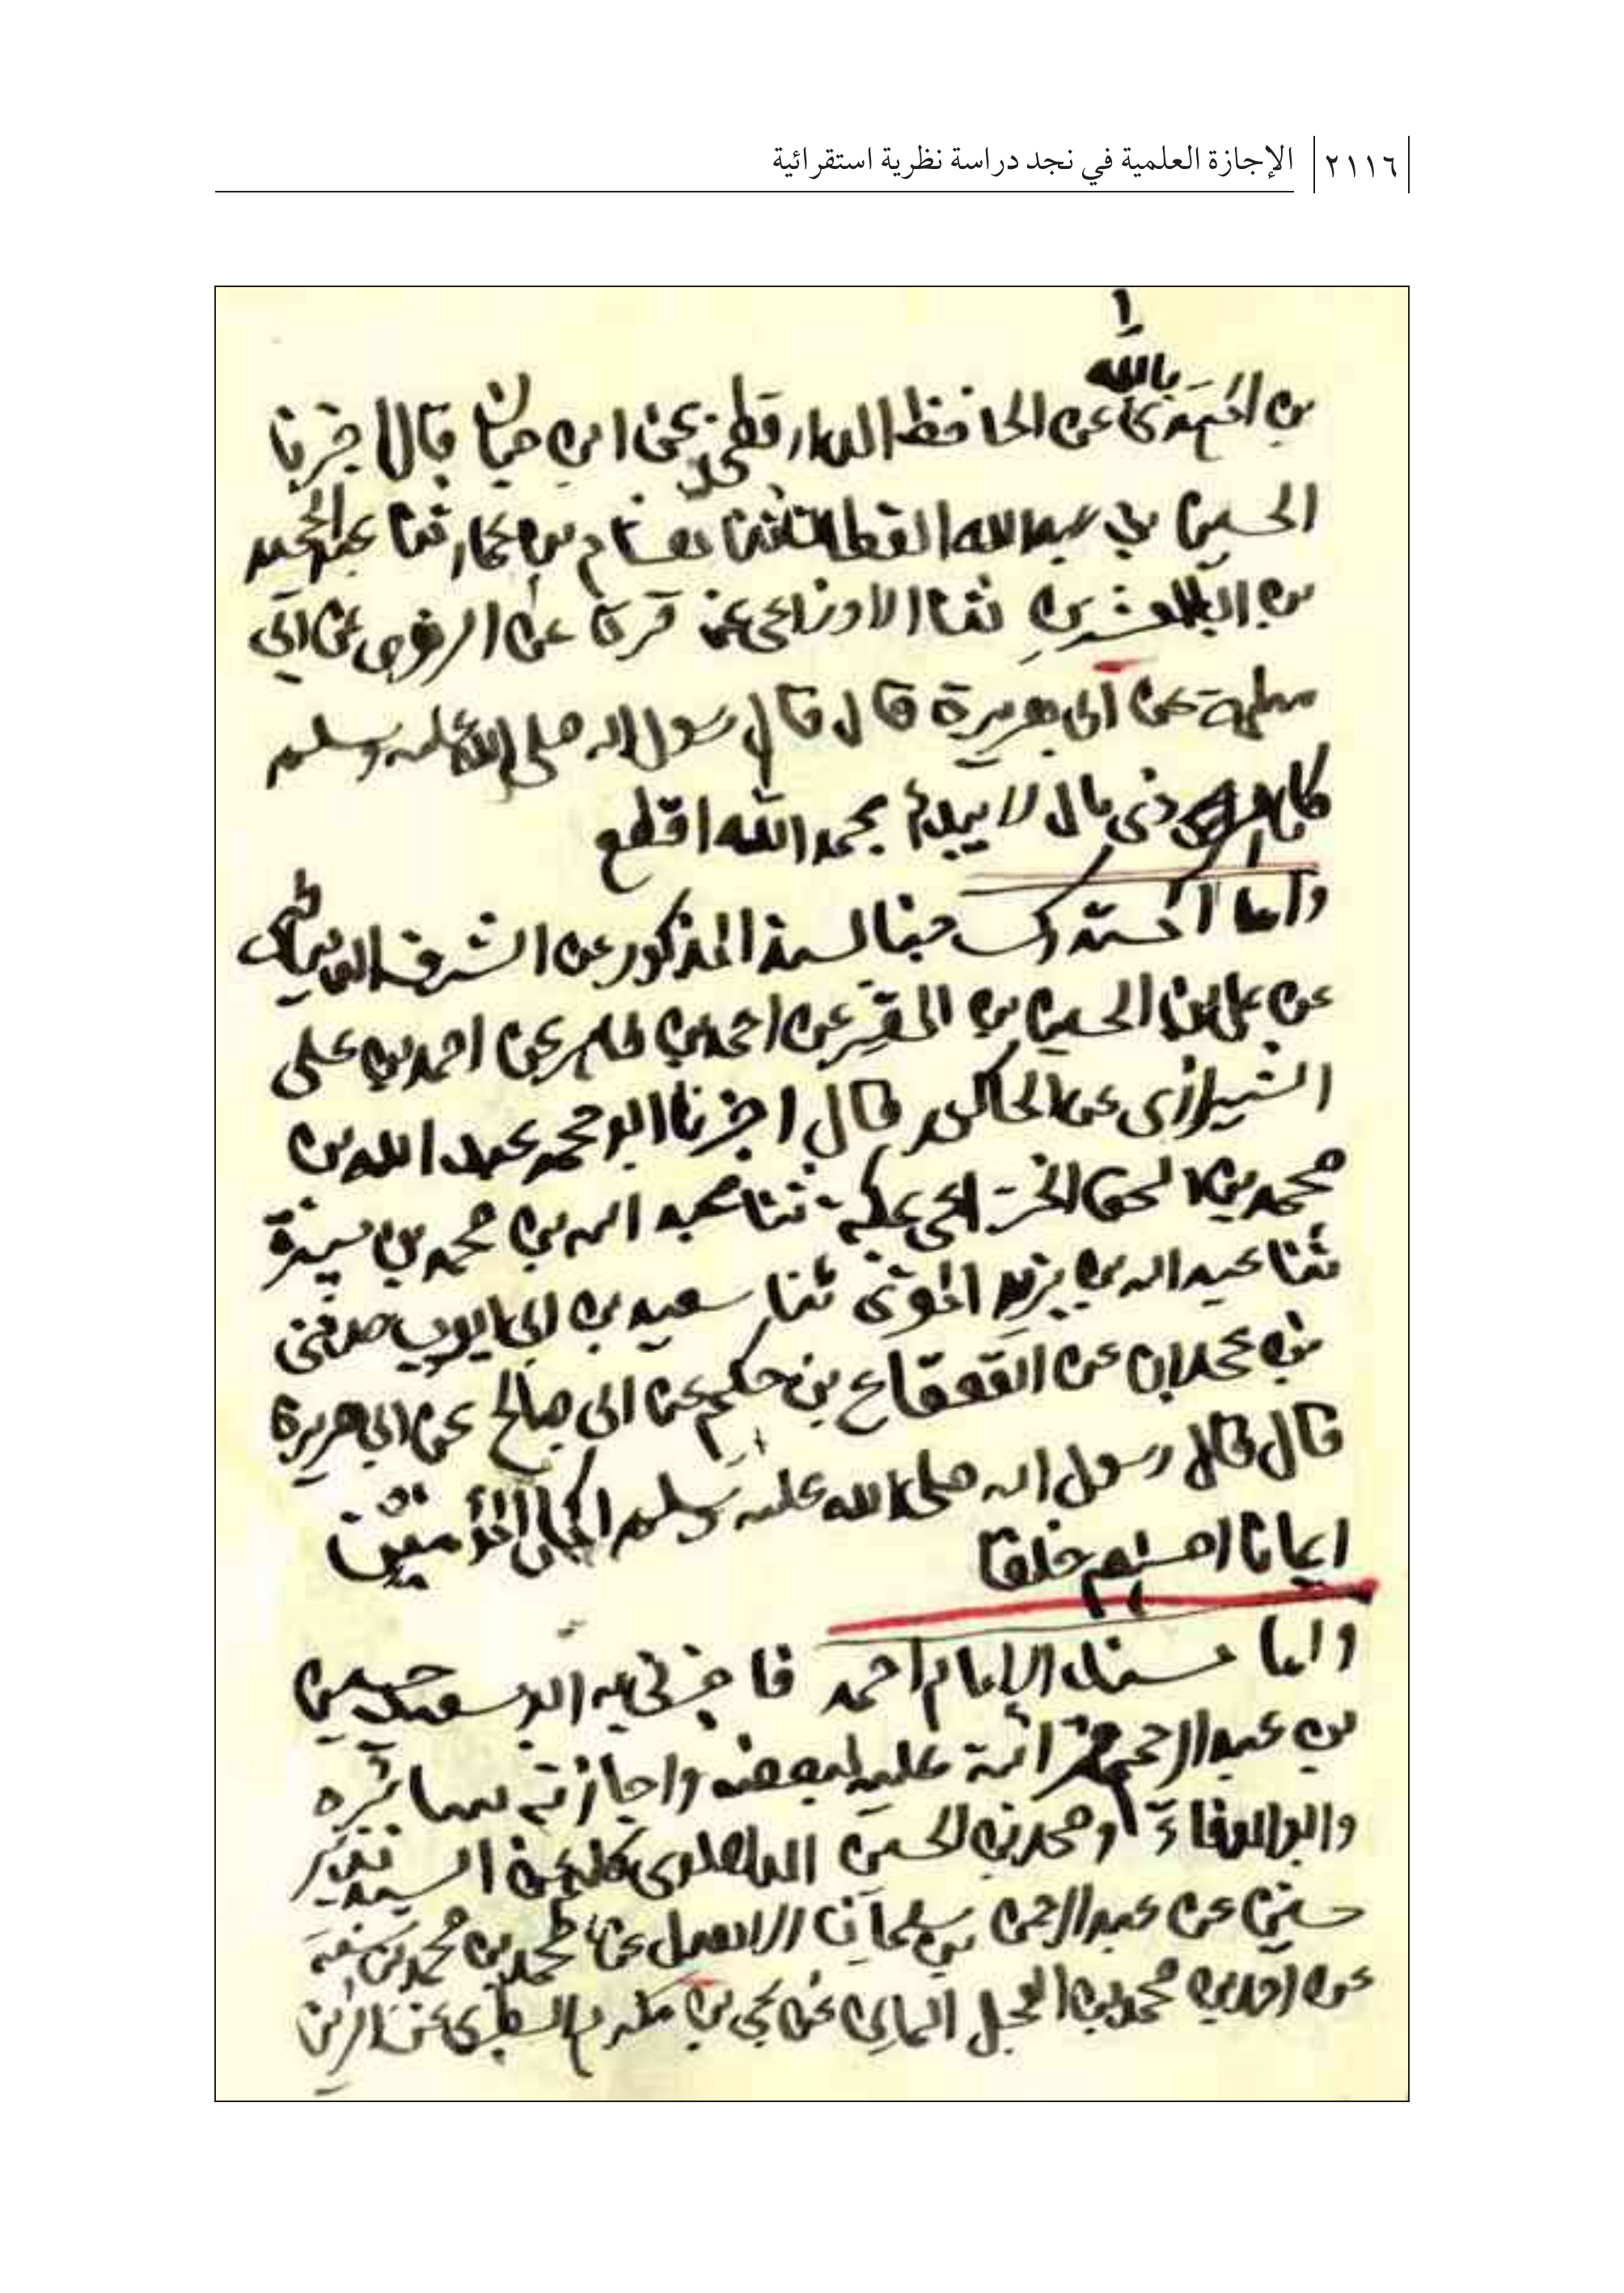 ٢١١٦ الإجازة العلمية في نجد دراسة نظرية استقرائية
بالله
بن المهتدى عن الحافظ الدارقطنى عن ابن حبان قال اخبرنا
الحسين بن عبد الله القطان ثنا هشام بن عمار ثنا عبد الحميد
بن العشرين ثنا الاوزاعى عن قرة عن الزهرى عن ابى
سلمة عن ابى هريرة قال قال رسول الله صلى الله عليه وسلم
كل امر ذى بال لا يبدأ بحمد الله اقطع
واما المستدرك فبالسند المذكور عن الشرف
عن على بن الحسين بن المقير عن احمد بن طاهر عن احمد بن على
الشيرازى عن الحاكم قال اخبرنا ابو محمد عبد الله بن
محمد بن اسحق الخزاعى بمكة ثنا عبد الله بن محمد بن ميسرة
ثنا عبد الله بن يزيد المقرى ثنا سعيد بن ابى ايوب حدثنى
بن عجلان عن القعقاع بن حكيم عن ابى صالح عن ابى هريرة
قال قال رسول الله صلى الله عليه وسلم اكمل المؤمنين
ايمانا احسنهم خلقا
واما مسند الإمام احمد فاخبرنى به ابو سعيد حسين
بن عبد الرحيم قرائة عليه لبعضه واجازته بسائره
وابو الوفاء ومحمد بن الحسين كلهم عن السيد نذير
حسين عن عبد الرحمن بن سليمان الاهدل عن محمد بن محمد بن سنة
عن احمد بن محمد بن العجل اليمانى عن يحيى بن مكرم الطبرى عن الزين